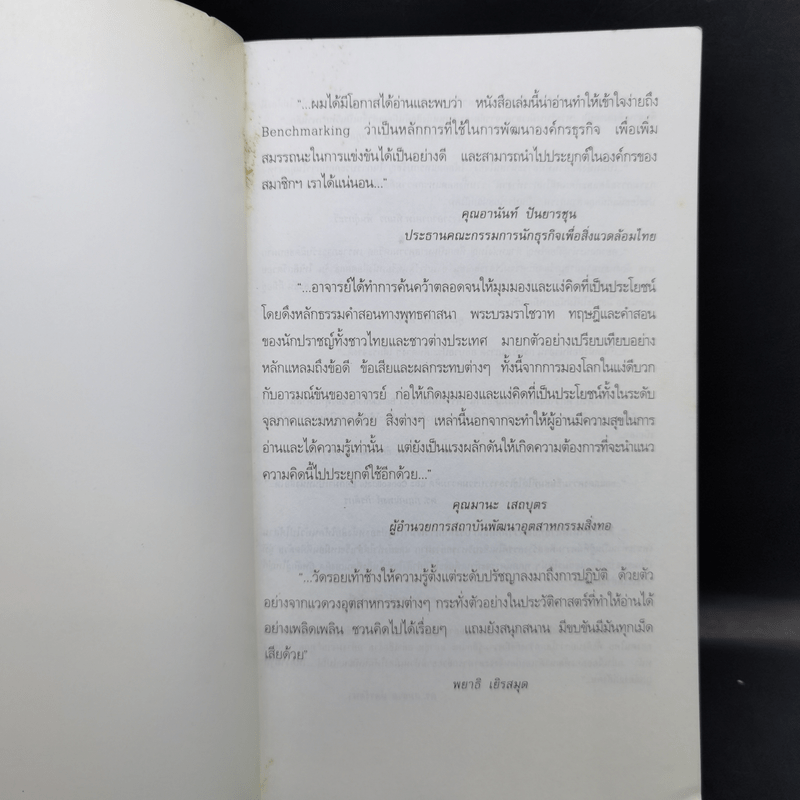 “...ผมได้มีโอกาสได้อ่านและพบว่า หนังสือเล่มนี้น่าอ่านทำให้เข้าใจง่ายถึง
Benchmarking ว่าเป็นหลักการที่ใช้ในการพัฒนาองค์กรธุรกิจ เพื่อเพิ่ม
สมรรถนะในการแข่งขันได้เป็นอย่างดี และสามารถนำไปประยุกต์ในองค์กรของ
สมาชิกฯ เราได้แน่นอน...”
คุณอานันท์ ปันยารชุน
ประธานคณะกรรมการนักธุรกิจเพื่อสิ่งแวดล้อมไทย
“...อาจารย์ได้ทำการค้นคว้าตลอดจนให้มุมมองและแง่คิดที่เป็นประโยชน์
โดยดึงหลักธรรมคำสอนทางพุทธศาสนา พระบรมราโชวาท ทฤษฎีและคำสอน
ของนักปราชญ์ทั้งชาวไทยและชาวต่างประเทศ มายกตัวอย่างเปรียบเทียบอย่าง
หลักแหลมถึงข้อดี ข้อเสียและผลกระทบต่างๆ ทั้งนี้จากการมองโลกในแง่ดีบวก
กับอารมณ์ขันของอาจารย์ ก่อให้เกิดมุมมองและแง่คิดที่เป็นประโยชน์ทั้งในระดับ
จุลภาคและมหภาคด้วย สิ่งต่างๆ เหล่านี้นอกจากจะทำให้ผู้อ่านมีความสุขในการ
อ่านและได้ความรู้เท่านั้น แต่ยังเป็นแรงผลักดันให้เกิดความต้องการที่จะนำแนว
ความคิดนี้ไปประยุกต์ใช้อีกด้วย...”
คุณมานะ เสถบุตร
ผู้อำนวยการสถาบันพัฒนาอุตสาหกรรมสิ่งทอ
“...วัดรอยเท้าช้างให้ความรู้ตั้งแต่ระดับปรัชญาลงมาถึงการปฏิบัติ ด้วยตัว
อย่างจากแวดวงอุตสาหกรรมต่างๆ กระทั่งตัวอย่างในประวัติศาสตร์ที่ทำให้อ่านได้
อย่างเพลิดเพลิน ชวนคิดไปได้เรื่อยๆ แถมยังสนุกสนาน มีขบขันมีมันทุกเม็ด
เสียด้วย”
พยาธิ เยิรสมุด